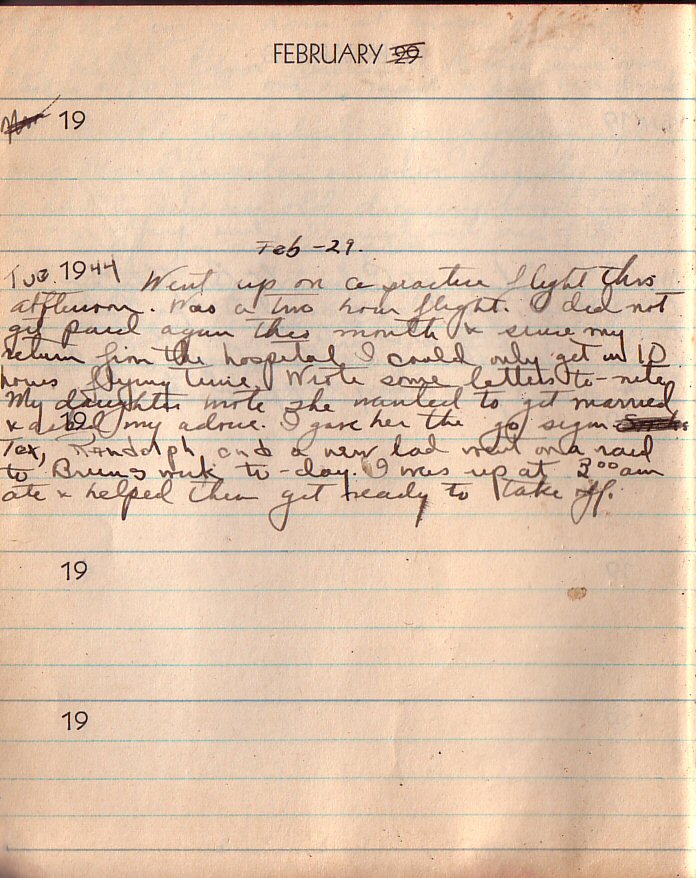 FEBRUARY 29
19
Feb - 29.
Tue. 1944 Went up on a practice flight this
afternoon. Was a two hour flight. I did not
get paid again this month & since my
return from the hospital I could only get in 10
hours flying time. Wrote some letters to-nite.
My daughter wrote she wanted to get married
19
& asked my advice. I gave her the go sign
Tex, Randolph and a new lad went on a raid
to Brunswick to-day. I was up at 3 00 am
ate & helped them get ready to take off.
19
19